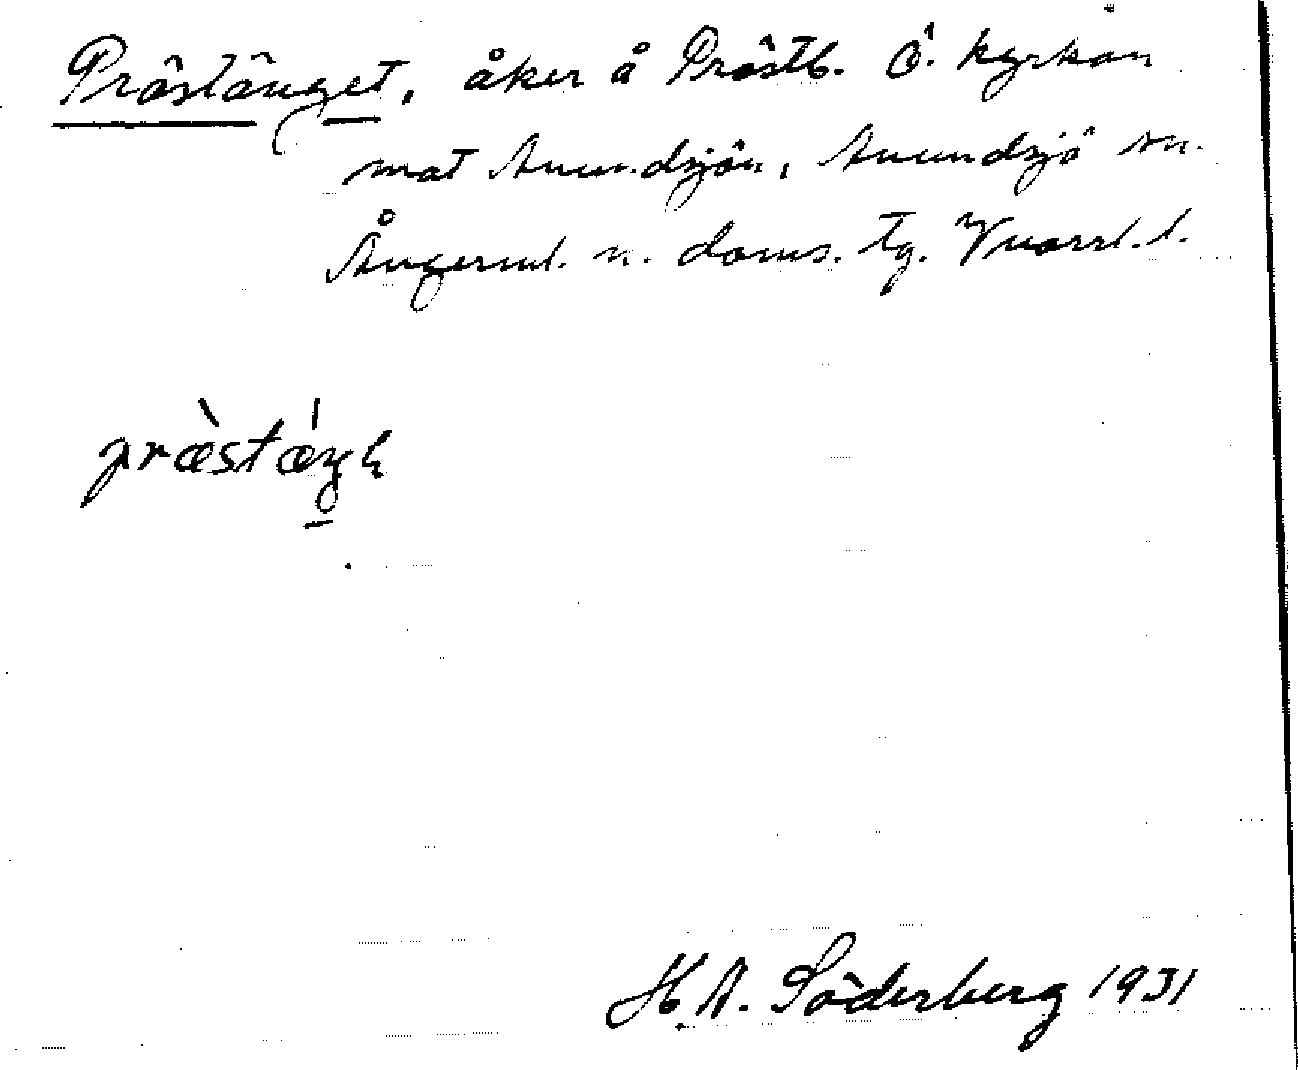 Prästänget, åker å Prästb. Ö. kyrkan
mot Anundsjön, Anundsjö sn.
Ångerml. n. doms. tg. Västernorrl. l.
præ̀stǽŋɛ
H. A. Söderberg 1931